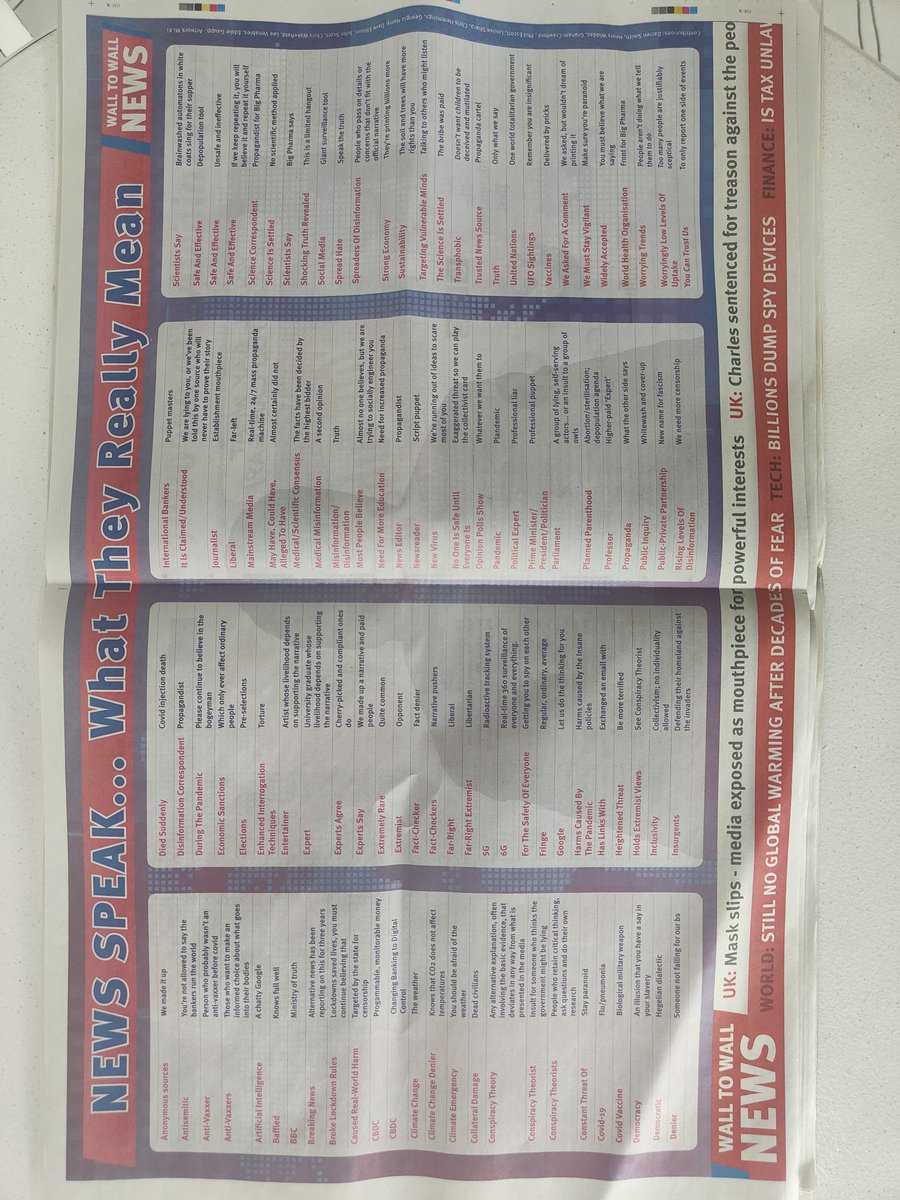 NEWS SPEAK... What They Really Mean
WALL TO WALL
NEWS
Anonymous sources We made it up
Antisemitic You're not allowed to say the
bankers run the world
Anti-Vaxxer Person who probably wasn't an
anti-vaxxer before covid
Anti-Vaxxers Those who want to make an
informed choice about what goes
into their bodies
Artificial Intelligence A chatty Google
Baffled Knows full well
BBC Ministry of truth
Breaking News Alternative news has been
reporting on this for three years
Broke Lockdown Rules Lockdowns saved lives, you must
continue believing that
Caused Real-World Harm Targeted by the state for
censorship
CBDC Programmable, monitorable money
CBDC Changing Banking to Digital
Control
Climate Change The weather
Climate Change Denier Knows that CO2 does not affect
temperatures
Climate Emergency You should be afraid of the
weather
Collateral Damage Dead civilians
Conspiracy Theory Any alternative explanation, often
involving the basic evidence, that
deviates in any way from what is
presented in the media
Conspiracy Theorist Insult for someone who thinks the
government might be lying
Conspiracy Theorists People who retain critical thinking,
ask questions and do their own
research
Constant Threat Of Stay paranoid
Covid-19 Flu/pneumonia
Covid Vaccine Biological military weapon
Democracy An illusion that you have a say in
your slavery
Democratic Hegelian dialectic
Denier Someone not falling for our bs
Died Suddenly Covid injection death
Disinformation Correspondent Propagandist
During The Pandemic Please continue to believe in the
bogeyman
Economic Sanctions Which only ever affect ordinary
people
Elections Pre-selections
Enhanced Interrogation Torture
Techniques
Entertainer Artist whose livelihood depends
on supporting the narrative
Expert University graduate whose
livelihood depends on supporting
the narrative
Experts Agree Cherry-picked and compliant ones
do
Experts Say We made up a narrative and paid
people
Extremely Rare Quite common
Extremist Opponent
Fact-Checker Fact denier
Fact-Checkers Narrative pushers
Far-Right Liberal
Far-Right Extremist Libertarian
5G Radioactive tracking system
6G Real-time 360 surveillance of
everyone and everything
For The Safety Of Everyone Getting you to spy on each other
Fringe Regular, ordinary, average
Google Let us do the thinking for you
Harms Caused By Harms caused by the insane
The Pandemic policies
Has Links With Exchanged an email with
Heightened Threat Be more terrified
Holds Extremist Views See Conspiracy Theorist
Inclusivity Collectivism; no individuality
allowed
Insurgents Defending their homeland against
the invaders
International Bankers Puppet masters
It Is Claimed/Understood We are lying to you, or we've been
told this by one source who will
never have to prove their story
Journalist Establishment mouthpiece
Liberal Far-left
Mainstream Media Real-time, 24/7 mass propaganda
machine
May Have, Could Have, Almost certainly did not
Alleged To Have
Medical/Scientific Consensus The facts have been decided by
the highest bidder
Medical Misinformation A second opinion
Misinformation/ Truth
Disinformation
Most People Believe Almost no one believes, but we are
trying to socially engineer you
Need For More Education Need for increased propaganda
News Editor Propagandist
Newsreader Script puppet
New Virus We're running out of ideas to scare
most of you
No One Is Safe Until Exaggerated threat so we can play
Everyone Is the collectivist card
Opinion Polls Show Whatever we want them to
Pandemic Plandemic
Political Expert Professional liar
Prime Minister/ Professional puppet
President/Politician
Parliament A group of lying, self-serving
actors.. or an insult to a group of
owls
Planned Parenthood Abortion/sterilisation;
depopulation agenda
Professor Higher-paid 'Expert'
Propaganda What the other side says
Public Inquiry Whitewash and cover-up
Public-Private Partnership New name for fascism
Rising Levels Of We need more censorship
Disinformation
Scientists Say Brainwashed automatons in white
coats sing for their supper
Safe And Effective Depopulation tool
Safe And Effective Unsafe and ineffective
Safe And Effective If we keep repeating it, you will
believe it and repeat it yourself
Science Correspondent Propagandist for Big Pharma
Science Is Settled No scientific method applied
Scientists Say Big Pharma says
Shocking Truth Revealed This is a limited hangout
Social Media Giant surveillance tool
Spread Hate Speak the truth
Spreaders Of Disinformation People who pass on details or
concerns that don't fit with the
official narrative
Strong Economy They're printing billions more
Sustainability The soil and trees will have more
rights than you
Targeting Vulnerable Minds Talking to others who might listen
The Science Is Settled The bribe was paid
Transphobic Doesn't want children to be
deceived and mutilated
Trusted News Source Propaganda cartel
Truth Only what we say
United Nations One world totalitarian government
UFO Sightings Remember you are insignificant
Vaccines Delivered by pricks
We Asked For A Comment We asked, but wouldn't dream of
printing it
We Must Stay Vigilant Make sure you're paranoid
Widely Accepted You must believe what we are
saying
World Health Organisation Front for Big Pharma
Worrying Trends People aren't doing what we tell
them to do
Worryingly Low Levels Of Too many people are justifiably
Uptake sceptical
You Can Trust Us To only report one side of events
WALL TO WALL
NEWS
UK: Mask slips - media exposed as mouthpiece for powerful interests UK: Charles sentenced for treason against the peo
WORLD: STILL NO GLOBAL WARMING AFTER DECADES OF FEAR TECH: BILLIONS DUMP SPY DEVICES FINANCE: IS TAX UNLAW